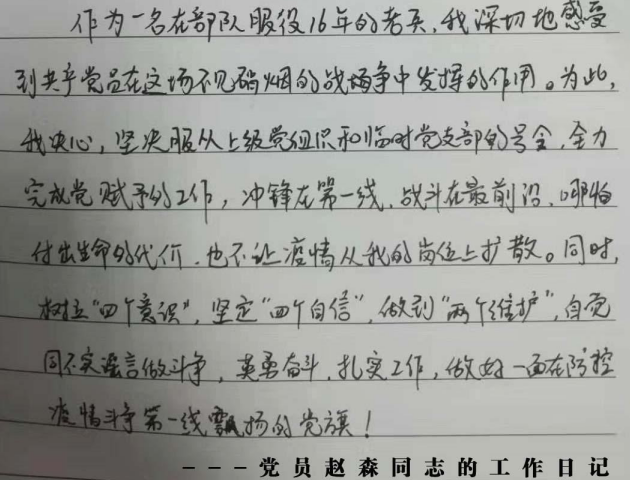 作为一名在部队服役16年的老兵，我深切地感受
到共产党员在这场不见硝烟的战场争中发挥的作用。为此，
我决心，坚决服从上级党组织和临时党支部的号令，全力
完成党赋予的工作，冲锋在第一线，战斗在最前沿，哪怕
付出生命的代价，也不让疫情从我的岗位上扩散。同时，
树立“四个意识”，坚定“四个自信”，做到“两个维护”，自觉
同不实谣言做斗争，英勇奋斗，扎实工作，做好一面在防控
疫情斗争第一线飘扬的党旗！
---党员赵森同志的工作日记